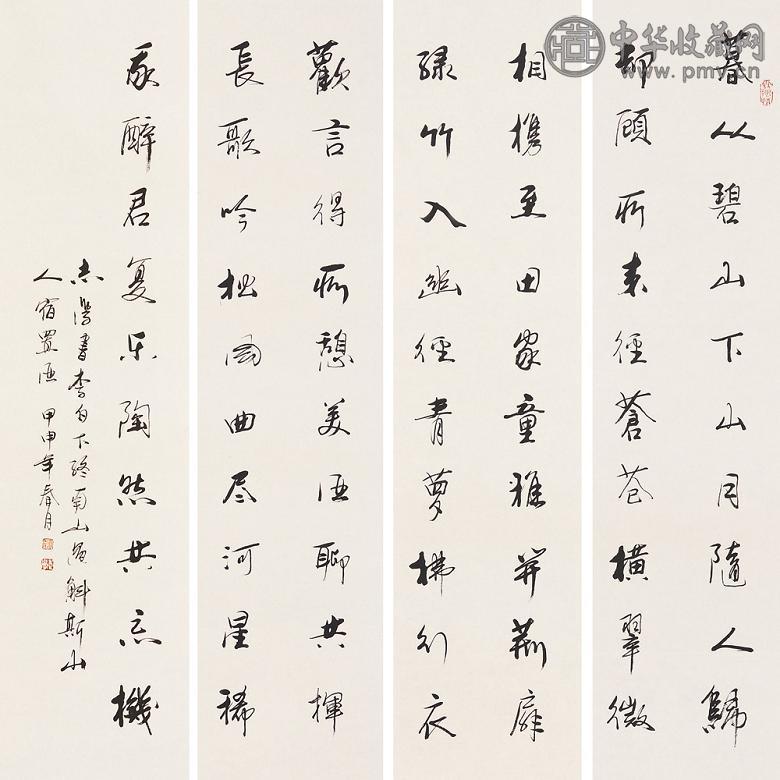 中华收藏网
www.pmy.cn
暮从碧山下山月隨人歸
却顾所来徑蒼苍橫翠微
相携至田家童稚荆扉
绿竹入幽徑青萝拂行衣
歡言得所憩美酒聊共揮
長歌吟松风曲尽河星稀
我醉君复乐陶然共忘機
书李白下终南山过斛斯山
人宿置酒 甲申年春月